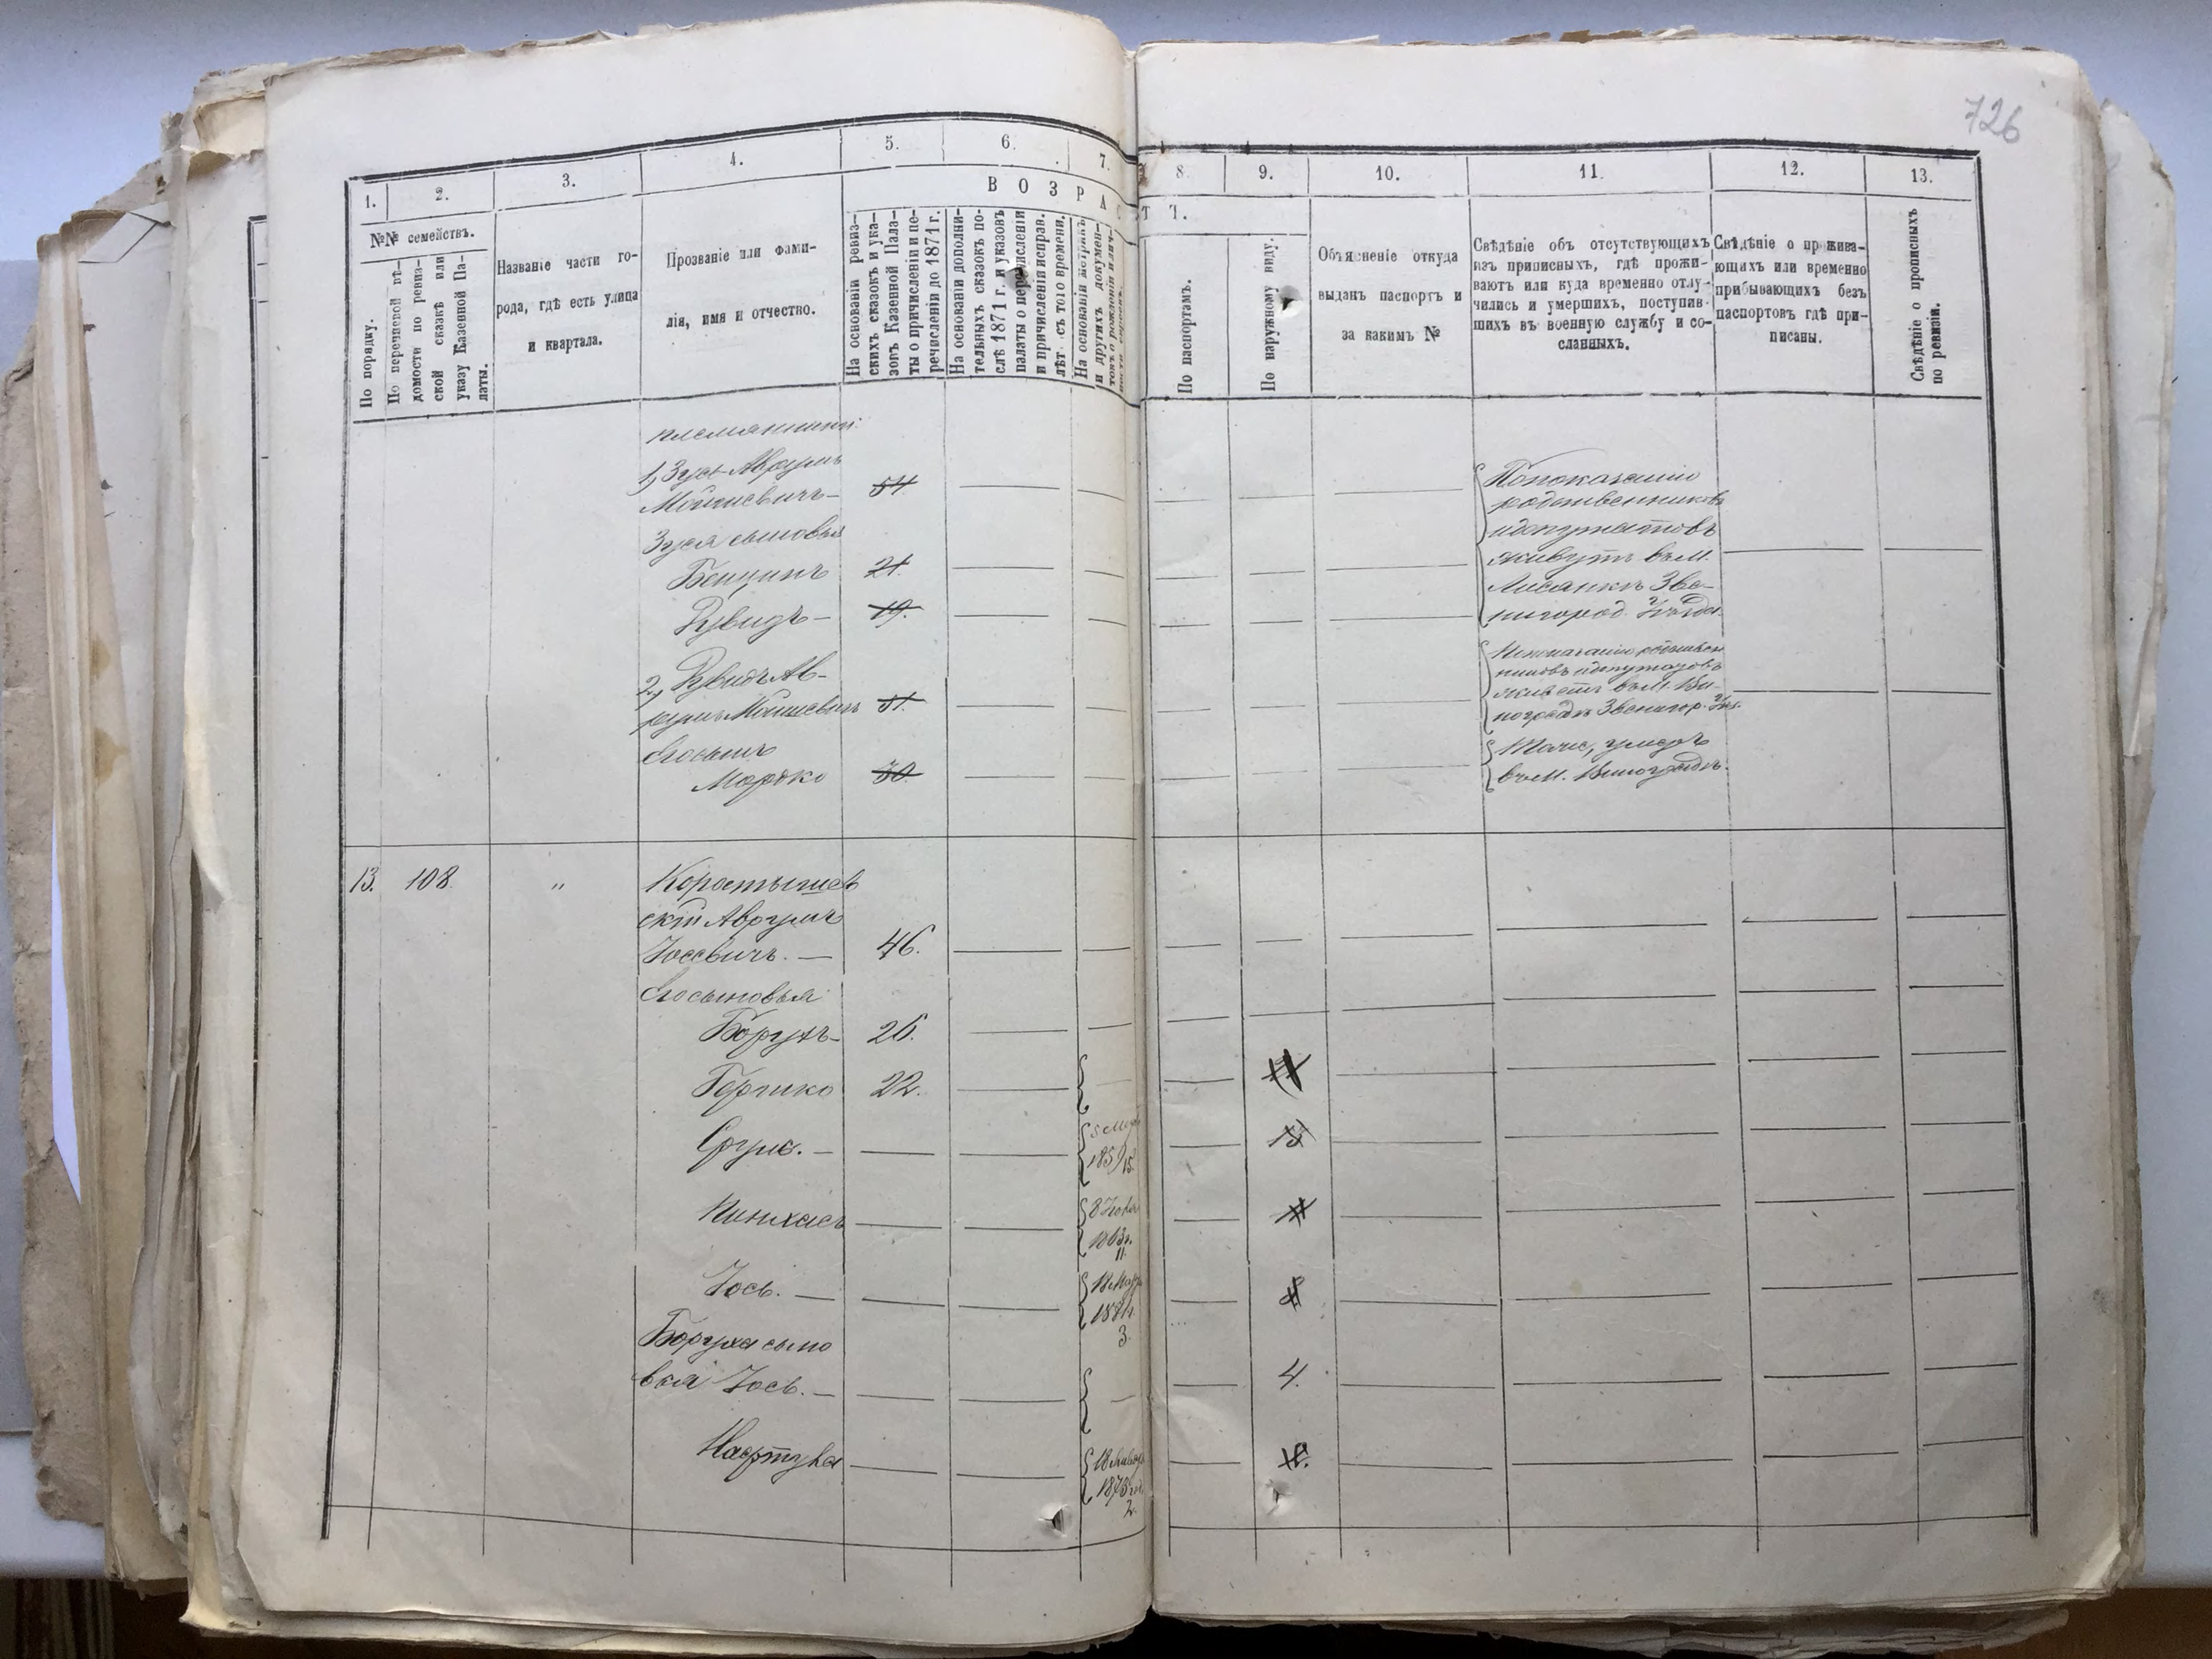 726
1.
2.
3.
4.
5.
6.
7.
8
9.
10.
11.
12.
13.
№№ семействъ.
По порядку.
По перечневой вѣ-
домости по ревиз-
ской сказкѣ или
указу Казенной Па-
латы.
Названіе части го-
рода, гдѣ есть улица
и квартала.
Прозваніе или фами-
лія, имя и отчество.
ВОЗРАСТЪ.
На основаніи ревиз-
скихъ сказокъ и ука-
зовъ Казенной Пала-
ты о причисленіи и пе-
речисленіи до 1871 г.
На основаніи дополни-
тельныхъ сказокъ по-
слѣ 1871 г. и указовъ
палаты о перечисленіи
и причисленіи исправ.
лѣт. съ того времени.
На основаніи метрикъ
и другихъ докумен-
товъ о рожденіи
По паспортамъ.
По наружному виду.
Объясненіе откуда
выданъ паспортъ и
за какимъ №
Свѣдѣніе объ отсутствующихъ
изъ приписныхъ, гдѣ прожи-
ваютъ или куда временно отлу-
чились и умершихъ, поступив-
шихъ въ военную службу и со-
сланныхъ.
Свѣдѣніе о прожива-
ющихъ или временно
прибывающихъ безъ
паспортовъ гдѣ при-
писаны.
Свѣдѣніе о прописныхъ
по ревизіи.
племянники:
1, Зусь Аврумъ
Мошкевичъ — 54
Зуся сыновья
Бенционъ 21.
Дувидъ — 19.
По показанію
родственниковъ
и депутатовъ
живутъ въ м.
Лисянкѣ Зве-
нигород. Уѣзда.
2, Дувидъ Ав-
румъ Мошкевичъ 51.
По показанію родствен
никовъ и депутатовъ
живетъ въ м. Ви-
ноградѣ Звенигор. Уѣз.
Его сынъ
Мордко 30.
Тоже, умеръ
въ м. Виноградѣ.
13. 108. "
Коростышев
скій Аврумъ
Іосевичъ. — 46.
Его сыновья
Борухъ — 26.
Гершко 22.
Срулъ. — 1859 15.
Пинхасъ 1863 г. 11.
Іось. — 18 3.
Боруха сыно
вья Іось. — 4.
Нафтула 18 1873 2.